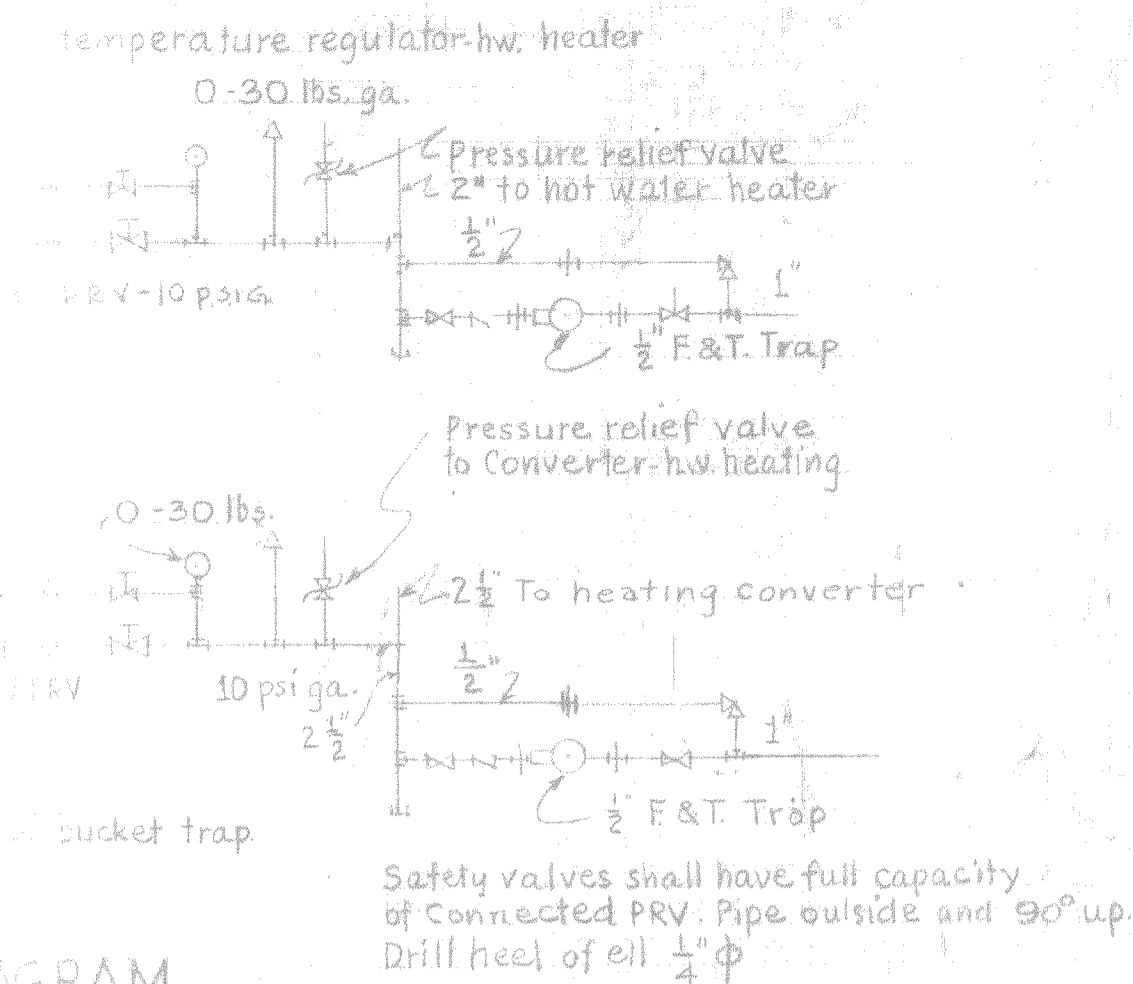 temperature regulator-hw. heater
0-30 lbs. ga.
Pressure relief valve
2" to hot water heater
1/2"
PRV-10 P.S.I.G.
1"
1/2" F.&T. Trap
Pressure relief valve
to Converter-hw heating
0-30 lbs.
2 1/2" To heating converter
PRV
10 psi ga.
1/2"
2 1/2"
1"
1/2" F.&T. Trap
bucket trap
Safety valves shall have full capacity
of Connected PRV. Pipe outside and 90° up.
Drill heel of ell 1/4" ϕ